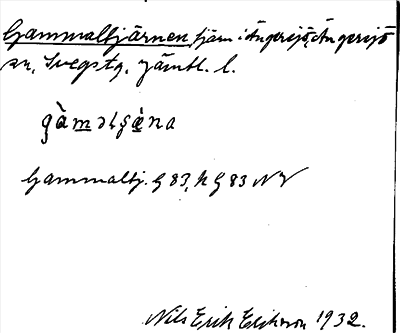 Gammaltjärnen tjärn i Ängersjö, Ängersjö
sn, Svegs tg, Jämtl. l.
gàməlʂæ̀na
Gammaltj. G 83, k G 83 NV
Nils Erik Erikson 1932.